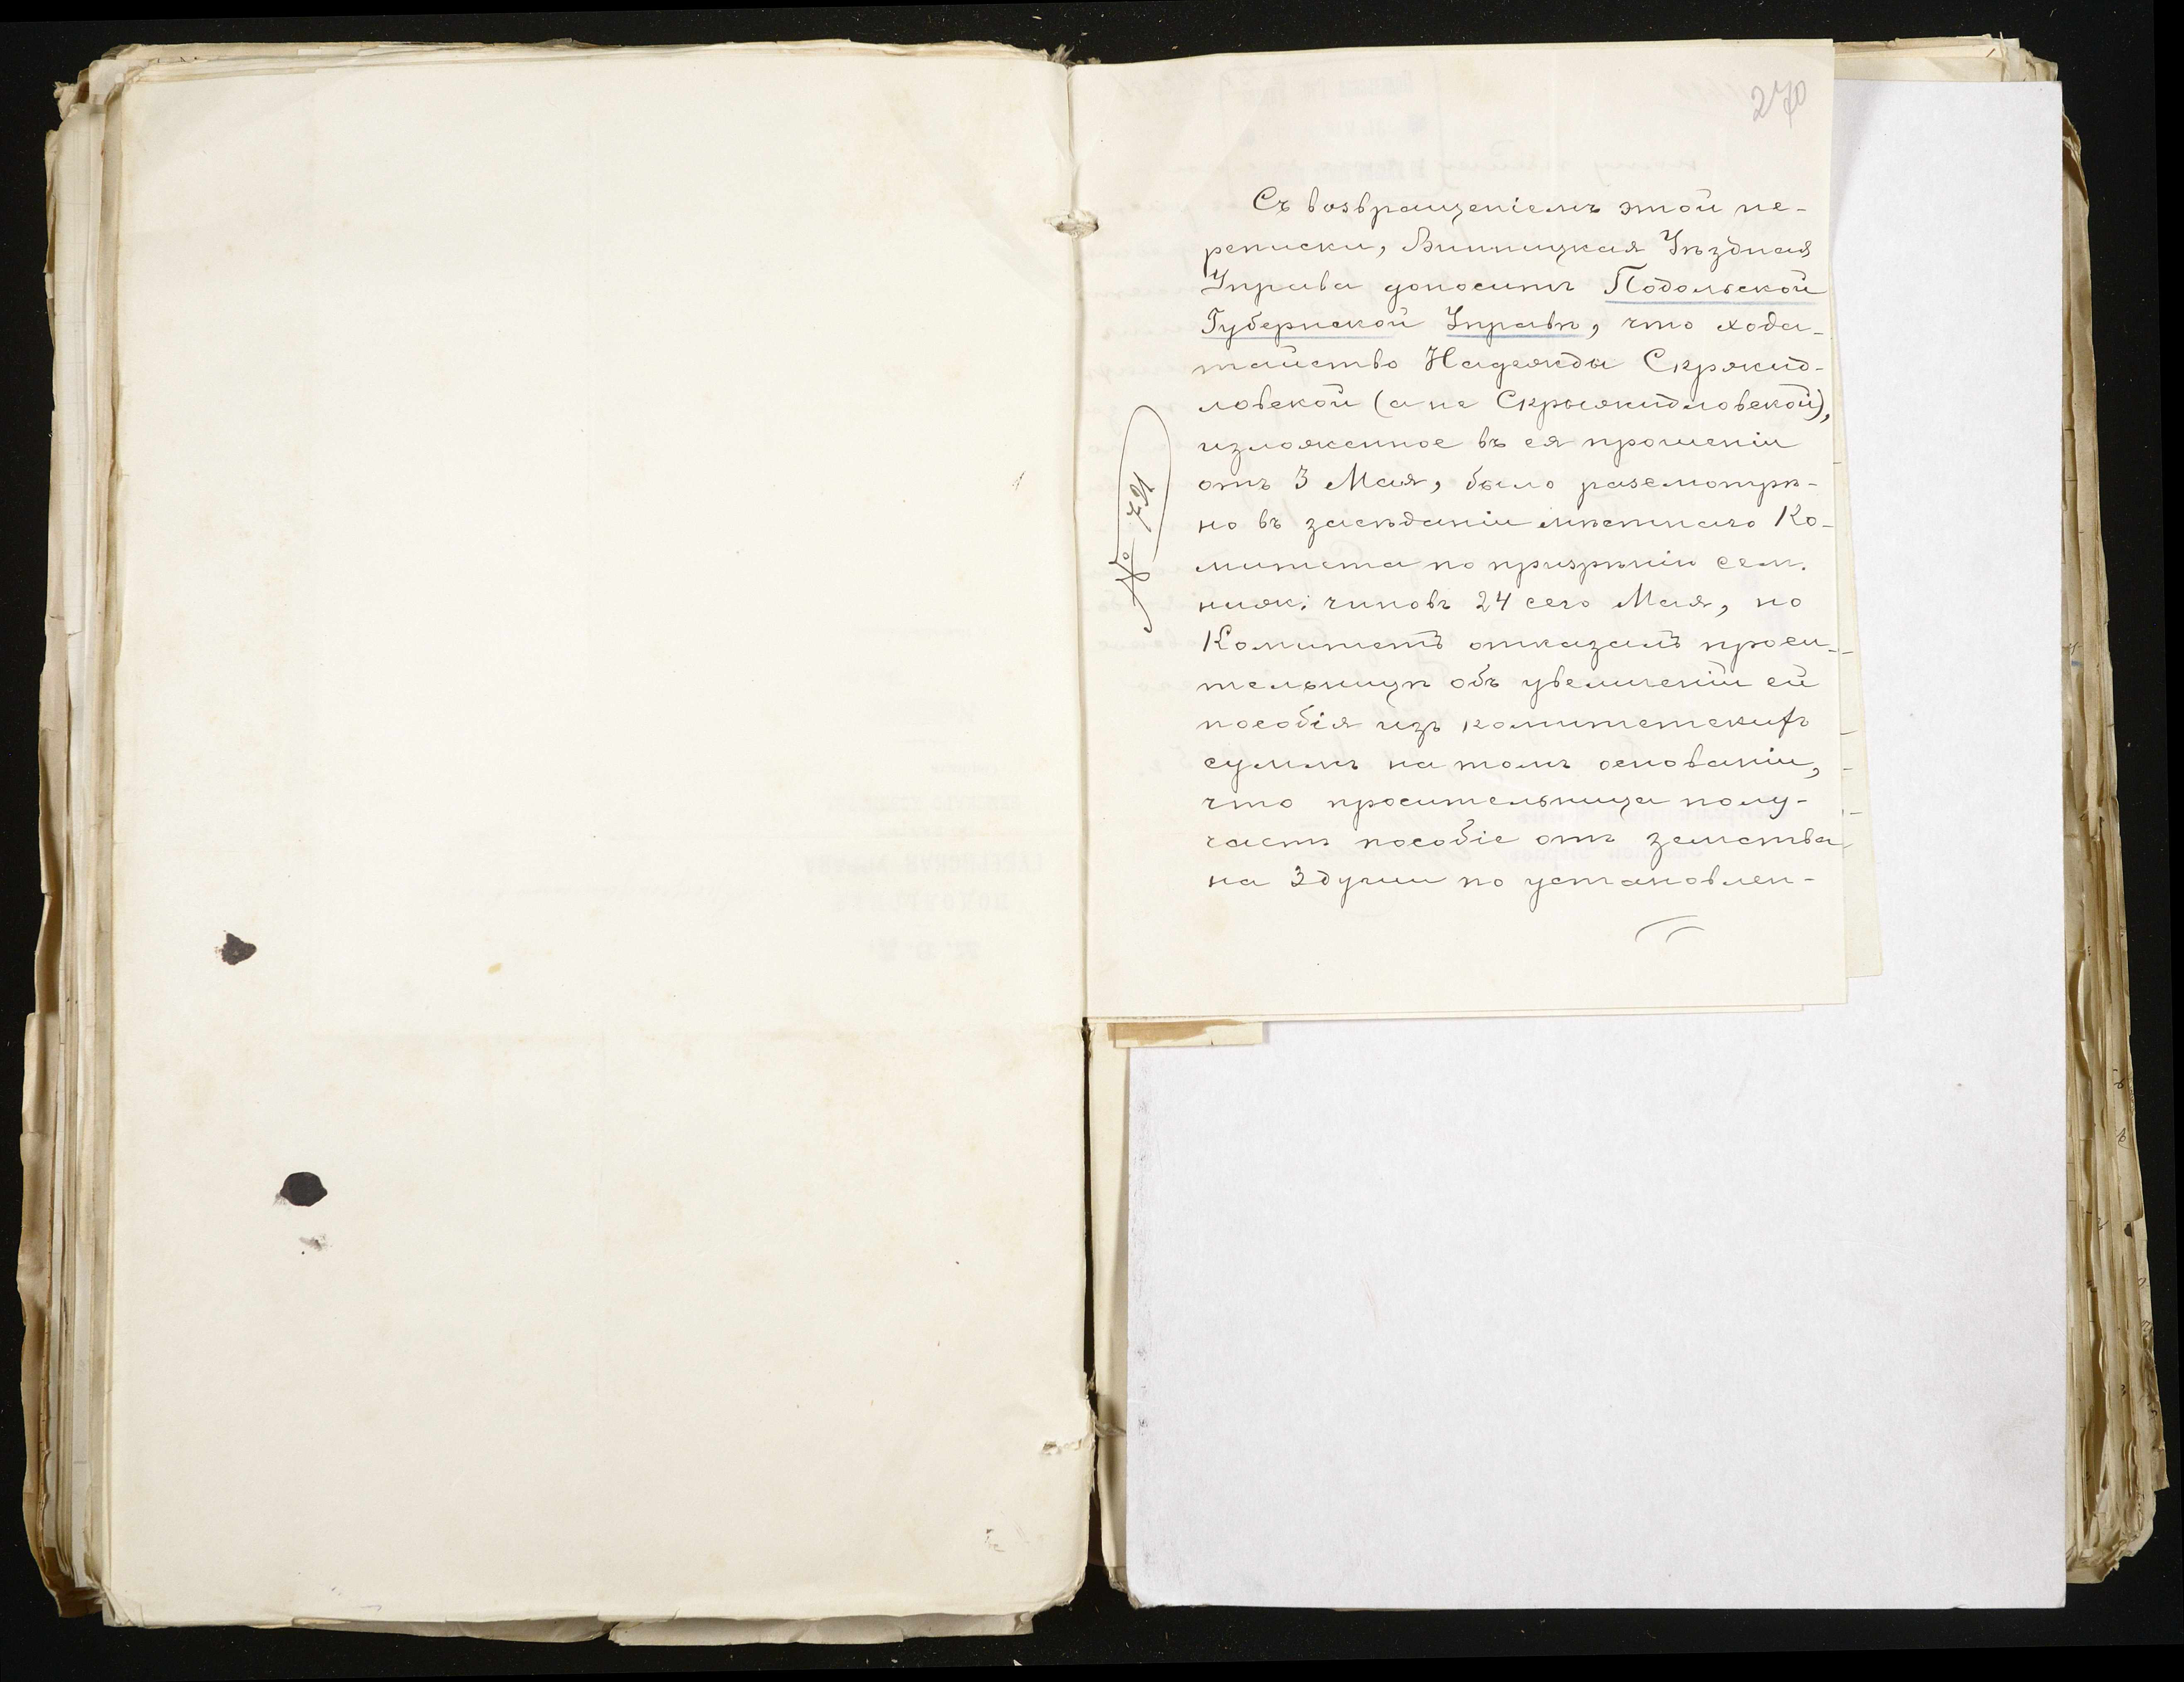 270
Съ возвращеніемъ этой пе-
реписки, Винницкая Уѣздная
Управа доноситъ Подольской
Губернской Управѣ, что хода-
тайство Надежды Скржид-
ловской (а не Скрыжидловской),
изложенное въ ея прошеніи
отъ 3 Мая, было разсмотрѣ-
но въ засѣданіи мѣстнаго Ко-
митета по призрѣнію сем.
нижн. чиновъ 24 сего Мая, но
Комитетъ отказалъ проси-
тельницѣ объ увеличеніи ей
пособія изъ комитетскихъ
суммъ на томъ основаніи,
что просительница полу-
чаетъ пособіе отъ земства
на 3 души по установлен-
№